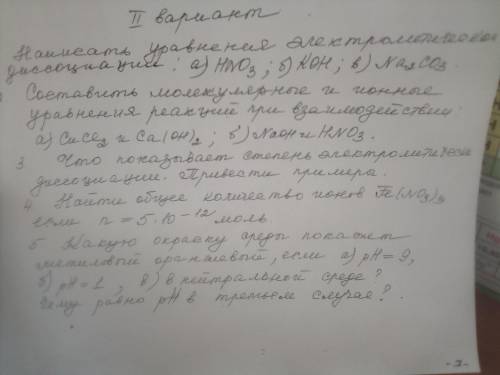 II вариант
Написать уравнения электролитической
диссоциации: а) HNO3; б) KOH; в) Na2CO3.
Составить молекулярные и ионные
уравнения реакций при взаимодействии:
а) CuCl2 и Ca(OH)2; б) NaOH и HNO3.
3 Что показывает степень электролитической
диссоциации. Привести примера.
4 Найти общее количество ионов Fe(NO3)3
если n = 5·10-12 моль.
5 Какую окраску среды покажет
метиловый оранжевый, если а) pH = 9,
б) pH = 1, в) в нейтральной среде?
Чему равно pH в третьем случае?